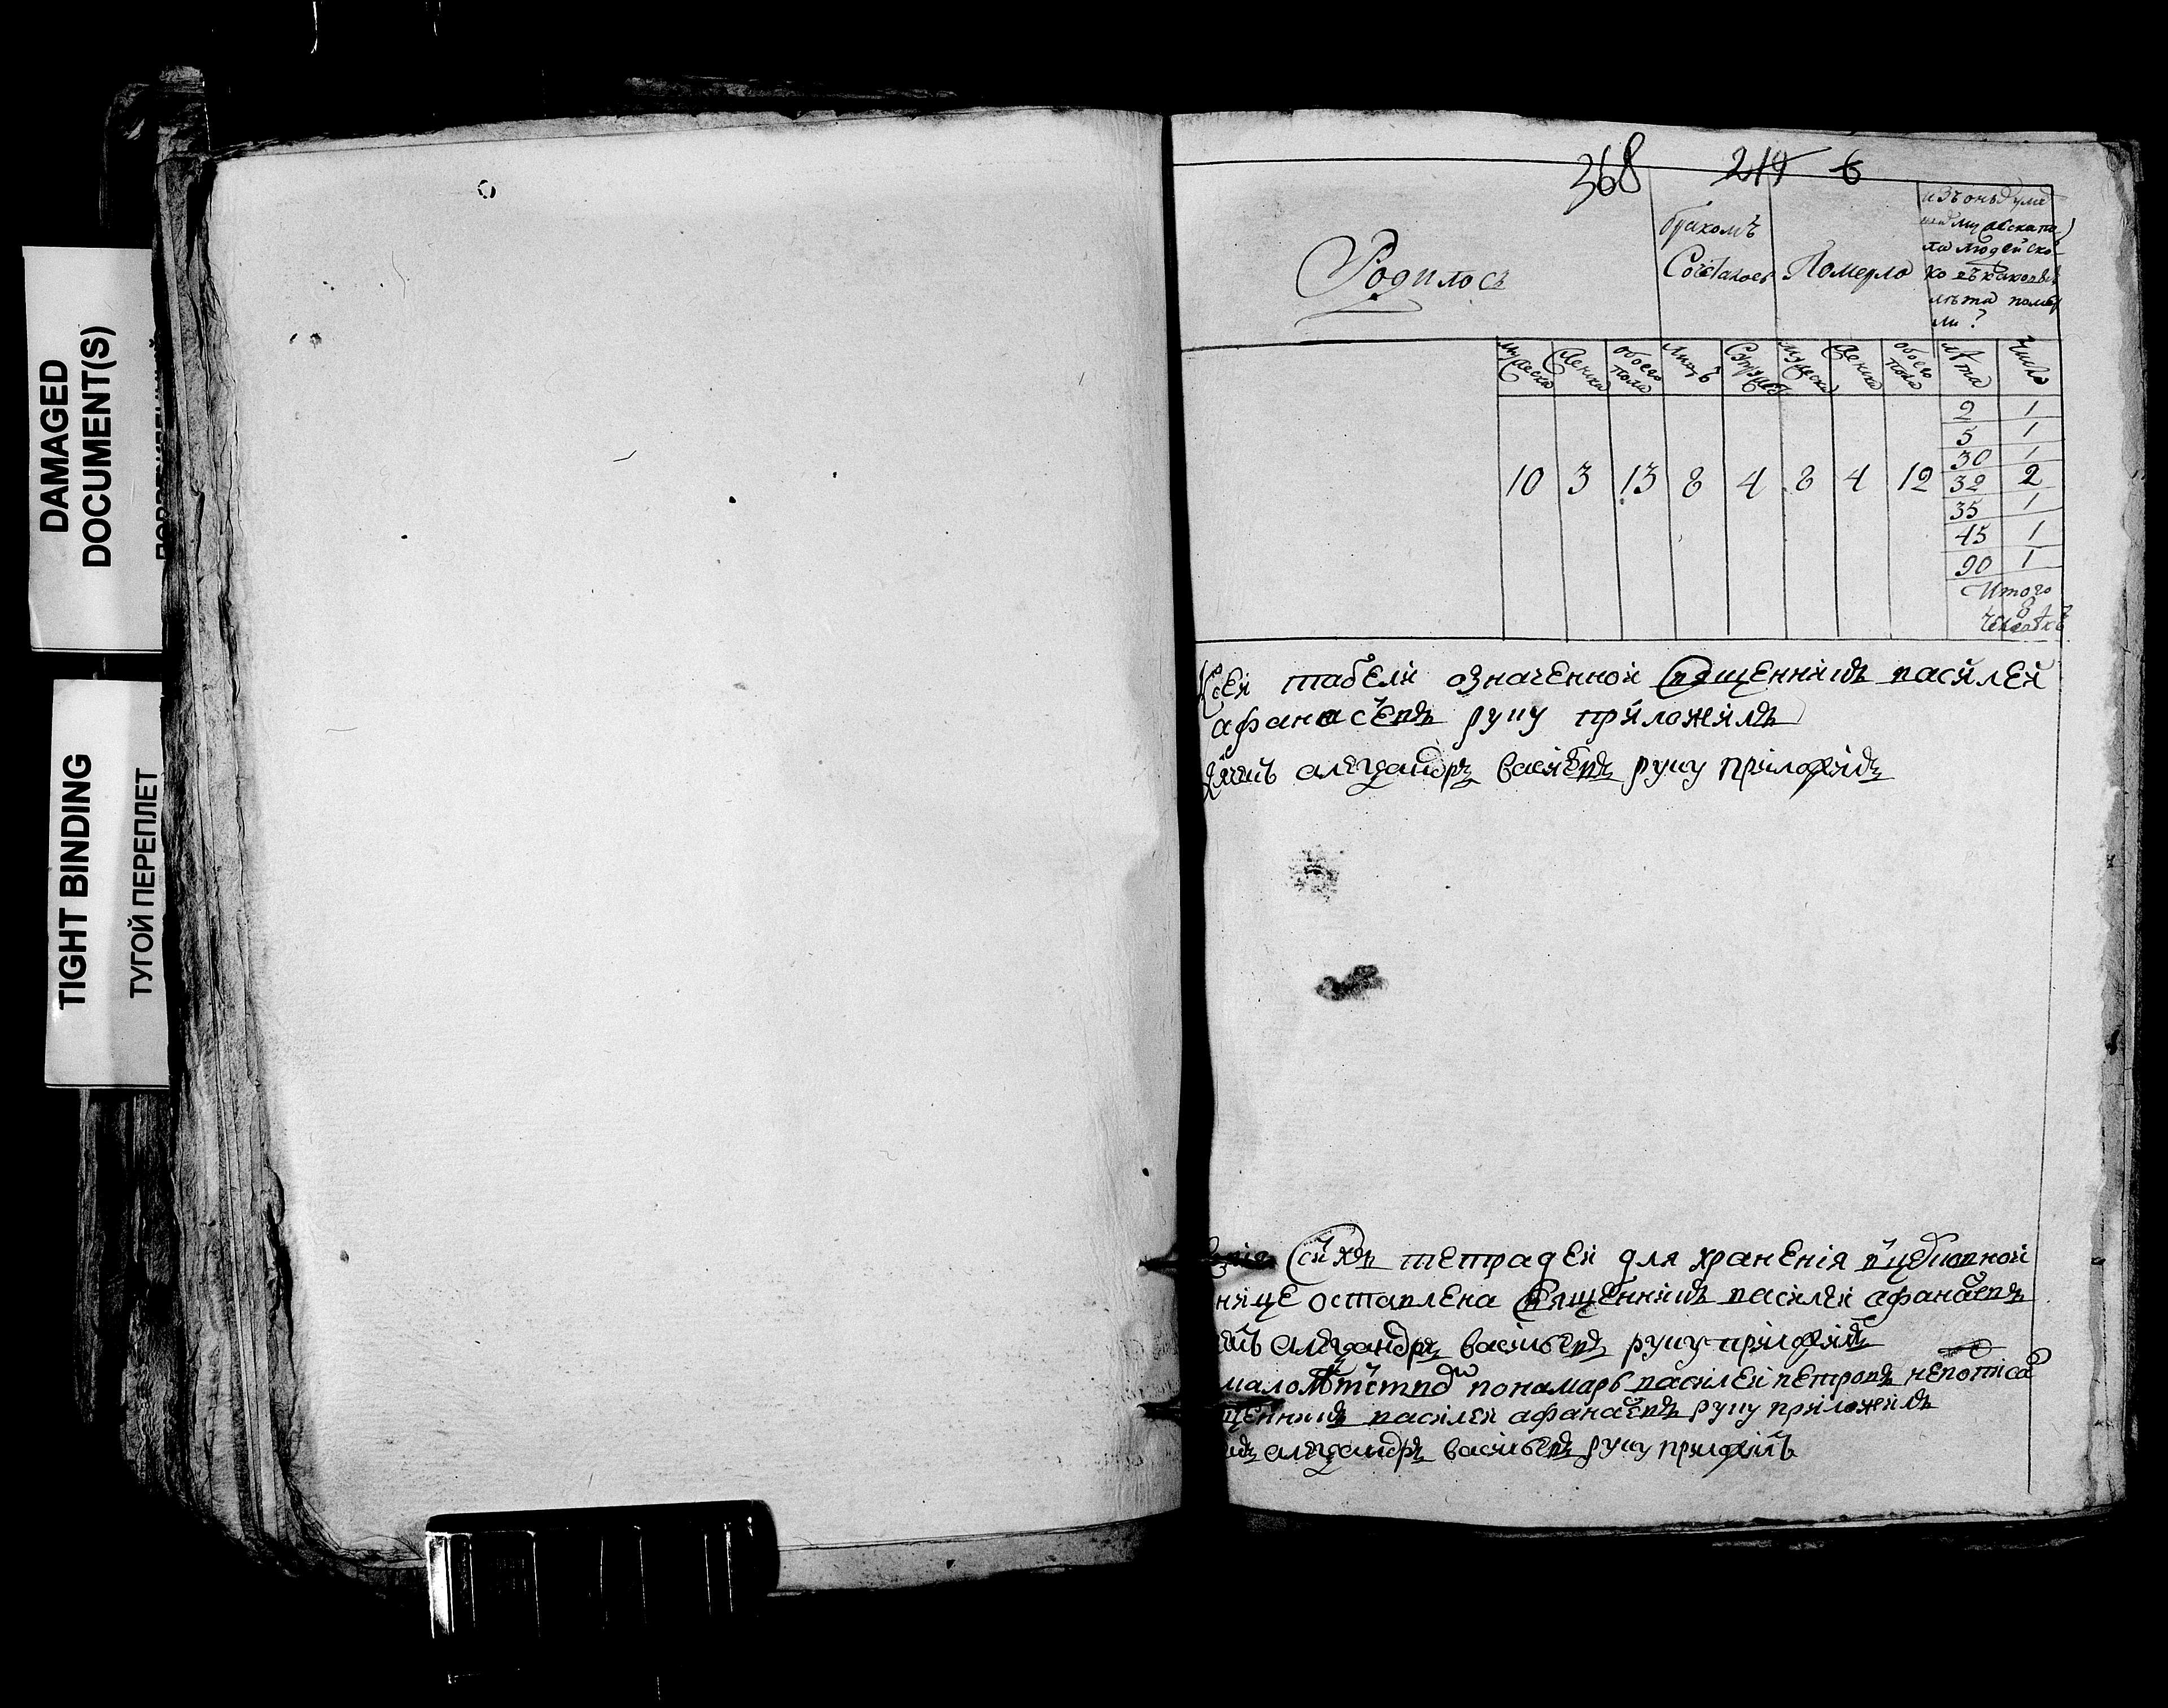 DAMAGED
DOCUMENT(S)
TIGHT BINDING
ТУГОЙ ПЕРЕПЛЕТ
368 219 6
Родилось
бракомъ
Сочеталось
Померло
изъ оныхъ уме
муска по
ла людей ско
ко въ
лѣта помер
ли?
муска
женска
обоего пола
лицъ
Супруговъ
мужеска
женска
обоего пола
лѣта
число
10 3 13 8 4 8 4 12
2 1
5 1
30 1
32 2
35 1
45 1
90 1
Итого
8
человѣкъ
Ксеи табели означенной Священникъ василей
афанасьевъ руку приложилъ
александръ васильевъ руку приложилъ
Сихъ тетрадей для хранения в церковной
нице оставлена Священникъ василей афанасьевъ
александръ васильевъ руку приложилъ
малолѣтствомъ пономарь василей петровъ неподписа
щенникъ василей афанасьевъ руку приложилъ
александръ васильевъ руку приложилъ